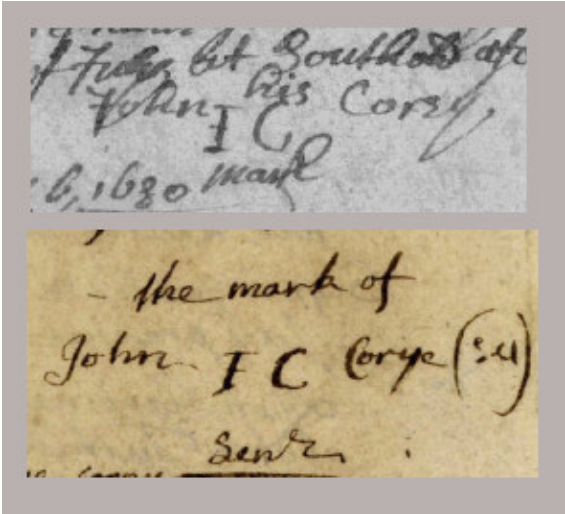 of July, at Southold
John his Corey
I C
6, 1680 mark
the mark of
John I C Corye
Senr